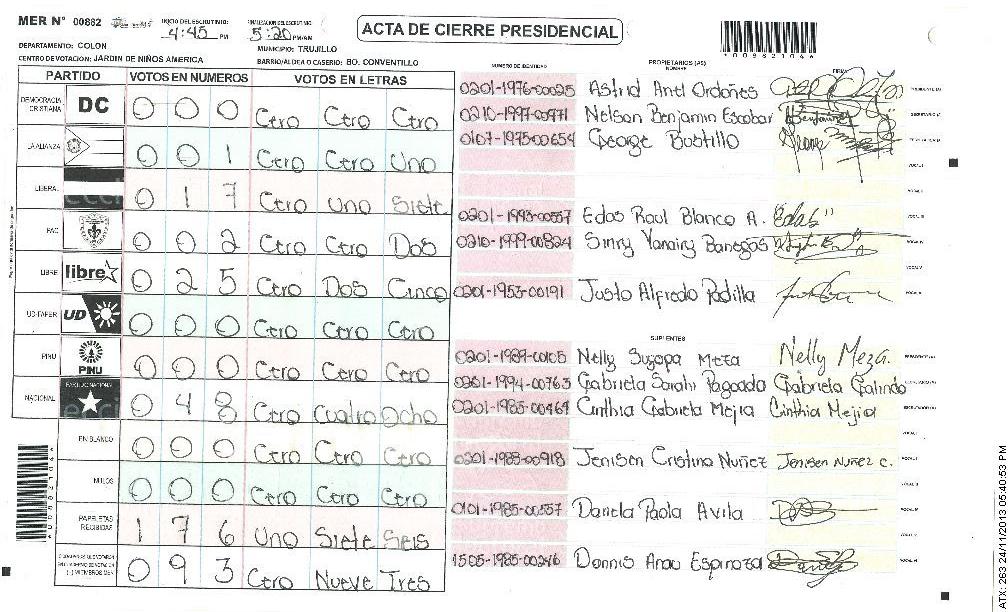 MER N° 00882
INICIO DEL ESCRUTINIO: 4:45 PM
FINALIZACION DEL ESCRUTINIO 5:20 PM/AM
ACTA DE CIERRE PRESIDENCIAL
DEPARTAMENTO: COLON
MUNICIPIO: TRUJILLO
CENTRO DE VOTACION: JARDIN DE NIÑOS AMERICA
BARRIO/ALDEA O CASERIO: BO. CONVENTILLO
PARTIDO VOTOS EN NUMEROS VOTOS EN LETRAS
DEMOCRACIA CRISTIANA DC 0 0 0 Cero Cero Cero
LA ALIANZA 0 0 1 Cero Cero Uno
LIBERAL 0 1 7 Cero Uno Siete
PAC 0 0 2 Cero Cero Dos
LIBRE libre 0 2 5 Cero Dos Cinco
UD-FAPER UD 0 0 0 Cero Cero Cero
PINU PINU 0 0 0 Cero Cero Cero
NACIONAL PARTIDO NACIONAL 0 4 8 Cero Cuatro Ocho
EN BLANCO 0 0 0 Cero Cero Cero
NULOS 0 0 0 Cero Cero Cero
PAPELETAS RECIBIDAS 1 7 6 Uno Siete Seis
0 9 3 Cero Nueve Tres
NUMERO DE IDENTIDAD PROPIETARIOS (AS) NOMBRE FIRMA
0201-1976-00025 Astrid Anel Ordoñes
0210-1997-00971 Nelson Benjamin Escobar
0107-1975-00654 George Bustillo
0201-1993-00557 Edas Raul Blanco A. "Edas"
0210-1999-00824 Sinry Yanairy Banegas
0201-1953-00191 Justo Alfredo Padilla
SUPLENTES
0201-1989-00105 Nelly Suyapa Meza Nelly Meza.
0201-1994-00763 Gabriela Sarahi Pagoada Gabriela Galindo
0201-1985-00469 Cinthia Gabriela Mejia Cinthia Mejia
0201-1985-00918 Jenisen Cristina Nuñez Jenisen Nuñez c.
0101-1985-00557 Daniela Paola Avila
1505-1985-00246 Dennis Anau Espinoza
ATX: 263 24/11/2013 05:40:53 PM